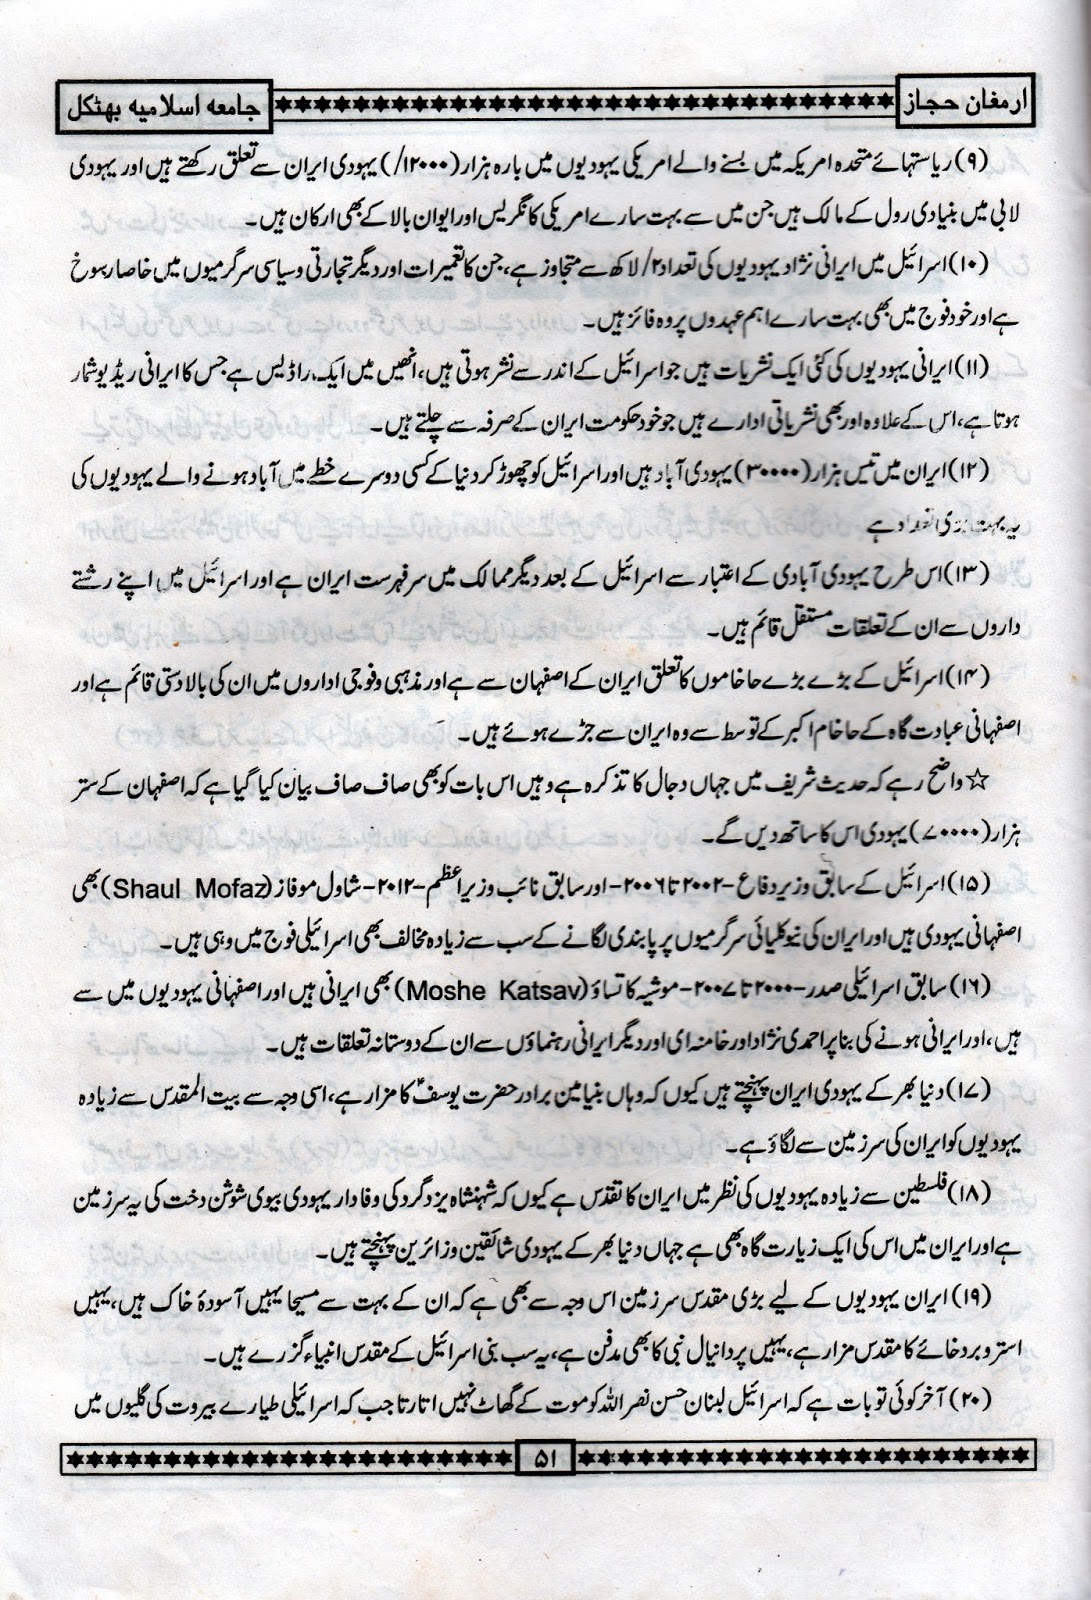 ارمغان حجاز
جامعہ اسلامیہ بھٹکل
(۹) ریاستہائے متحدہ امریکہ میں بسنے والے امریکی یہودیوں میں بارہ ہزار (۱۲۰۰۰/) یہودی ایران سے تعلق رکھتے ہیں اور یہودی
لابی میں بنیادی رول کے مالک ہیں جن میں سے بہت سارے امریکی کانگریس اور ایوان بالا کے بھی ارکان ہیں۔
(۱۰) اسرائیل میں ایرانی نژاد یہودیوں کی تعداد ۲/ لاکھ سے متجاوز ہے، جن کا تعمیرات اور دیگر تجارتی وسیاسی سرگرمیوں میں خاصا رسوخ
ہے اور خود فوج میں بھی بہت سارے اہم عہدوں پر وہ فائز ہیں۔
(۱۱) ایرانی یہودیوں کی کئی ایک نشریات ہیں جو اسرائیل کے اندر سے نشر ہوتی ہیں، انھیں میں ایک راڈیس ہے جس کا ایرانی ریڈیو شمار
ہوتا ہے، اس کے علاوہ اور بھی نشریاتی ادارے ہیں جو خود حکومت ایران کے صرفہ سے چلتے ہیں۔
(۱۲) ایران میں تیس ہزار (۳۰۰۰۰) یہودی آباد ہیں اور اسرائیل کو چھوڑ کر دنیا کے کسی دوسرے خطے میں آباد ہونے والے یہودیوں کی
یہ بہت بڑی تعداد ہے
(۱۳) اس طرح یہودی آبادی کے اعتبار سے اسرائیل کے بعد دیگر ممالک میں سرفہرست ایران ہے اور اسرائیل میں اپنے رشتے
داروں سے ان کے تعلقات مستقل قائم ہیں۔
(۱۴) اسرائیل کے بڑے بڑے حاخاموں کا تعلق ایران کے اصفہان سے ہے اور مذہبی وفوجی اداروں میں ان کی بالادستی قائم ہے اور
اصفہانی عبادت گاہ کے حاخام اکبر کے توسط سے وہ ایران سے جڑے ہوئے ہیں۔
☆ واضح رہے کہ حدیث شریف میں جہاں دجال کا تذکرہ ہے وہیں اس بات کو بھی صاف صاف بیان کیا گیا ہے کہ اصفہان کے ستر
ہزار (۷۰۰۰۰) یہودی اس کا ساتھ دیں گے۔
(۱۵) اسرائیل کے سابق وزیر دفاع -۲۰۰۲ تا ۲۰۰۶- اور سابق نائب وزیر اعظم -۲۰۱۲- شاول موفاز (Shaul Mofaz) بھی
اصفہانی یہودی ہیں اور ایران کی نیوکلیائی سرگرمیوں پر پابندی لگانے کے سب سے زیادہ مخالف بھی اسرائیلی فوج میں وہی ہیں۔
(۱۶) سابق اسرائیلی صدر -۲۰۰۰ تا ۲۰۰۷- موشیہ کاتساؤ (Moshe Katsav) بھی ایرانی ہیں اور اصفہانی یہودیوں میں سے
ہیں، اور ایرانی ہونے کی بنا پر احمدی نژاد اور خامنہ ای اور دیگر ایرانی رہنماؤں سے ان کے دوستانہ تعلقات ہیں۔
(۱۷) دنیا بھر کے یہودی ایران پہنچتے ہیں کیوں کہ وہاں بنیامین برادر حضرت یوسفؑ کا مزار ہے، اسی وجہ سے بیت المقدس سے زیادہ
یہودیوں کو ایران کی سرزمین سے لگاؤ ہے۔
(۱۸) فلسطین سے زیادہ یہودیوں کی نظر میں ایران کا تقدس ہے کیوں کہ شہنشاہ یزدگرد کی وفادار یہودی بیوی شوشن دخت کی یہ سرزمین
ہے اور ایران میں اس کی ایک زیارت گاہ بھی ہے جہاں دنیا بھر کے یہودی شائقین وزائرین پہنچتے ہیں۔
(۱۹) ایران یہودیوں کے لیے بڑی مقدس سرزمین اس وجہ سے بھی ہے کہ ان کے بہت سے مسیحا یہیں آسودۂ خاک ہیں، یہیں
استرو بردخائے کا مقدس مزار ہے، یہیں پر دانیال نبی کا بھی مدفن ہے، یہ سب بنی اسرائیل کے مقدس انبیاء گزرے ہیں۔
(۲۰) آخر کوئی تو بات ہے کہ اسرائیل لبنان حسن نصر اللہ کو موت کے گھاٹ نہیں اتارتا جب کہ اسرائیلی طیارے بیروت کی گلیوں میں
۵۱